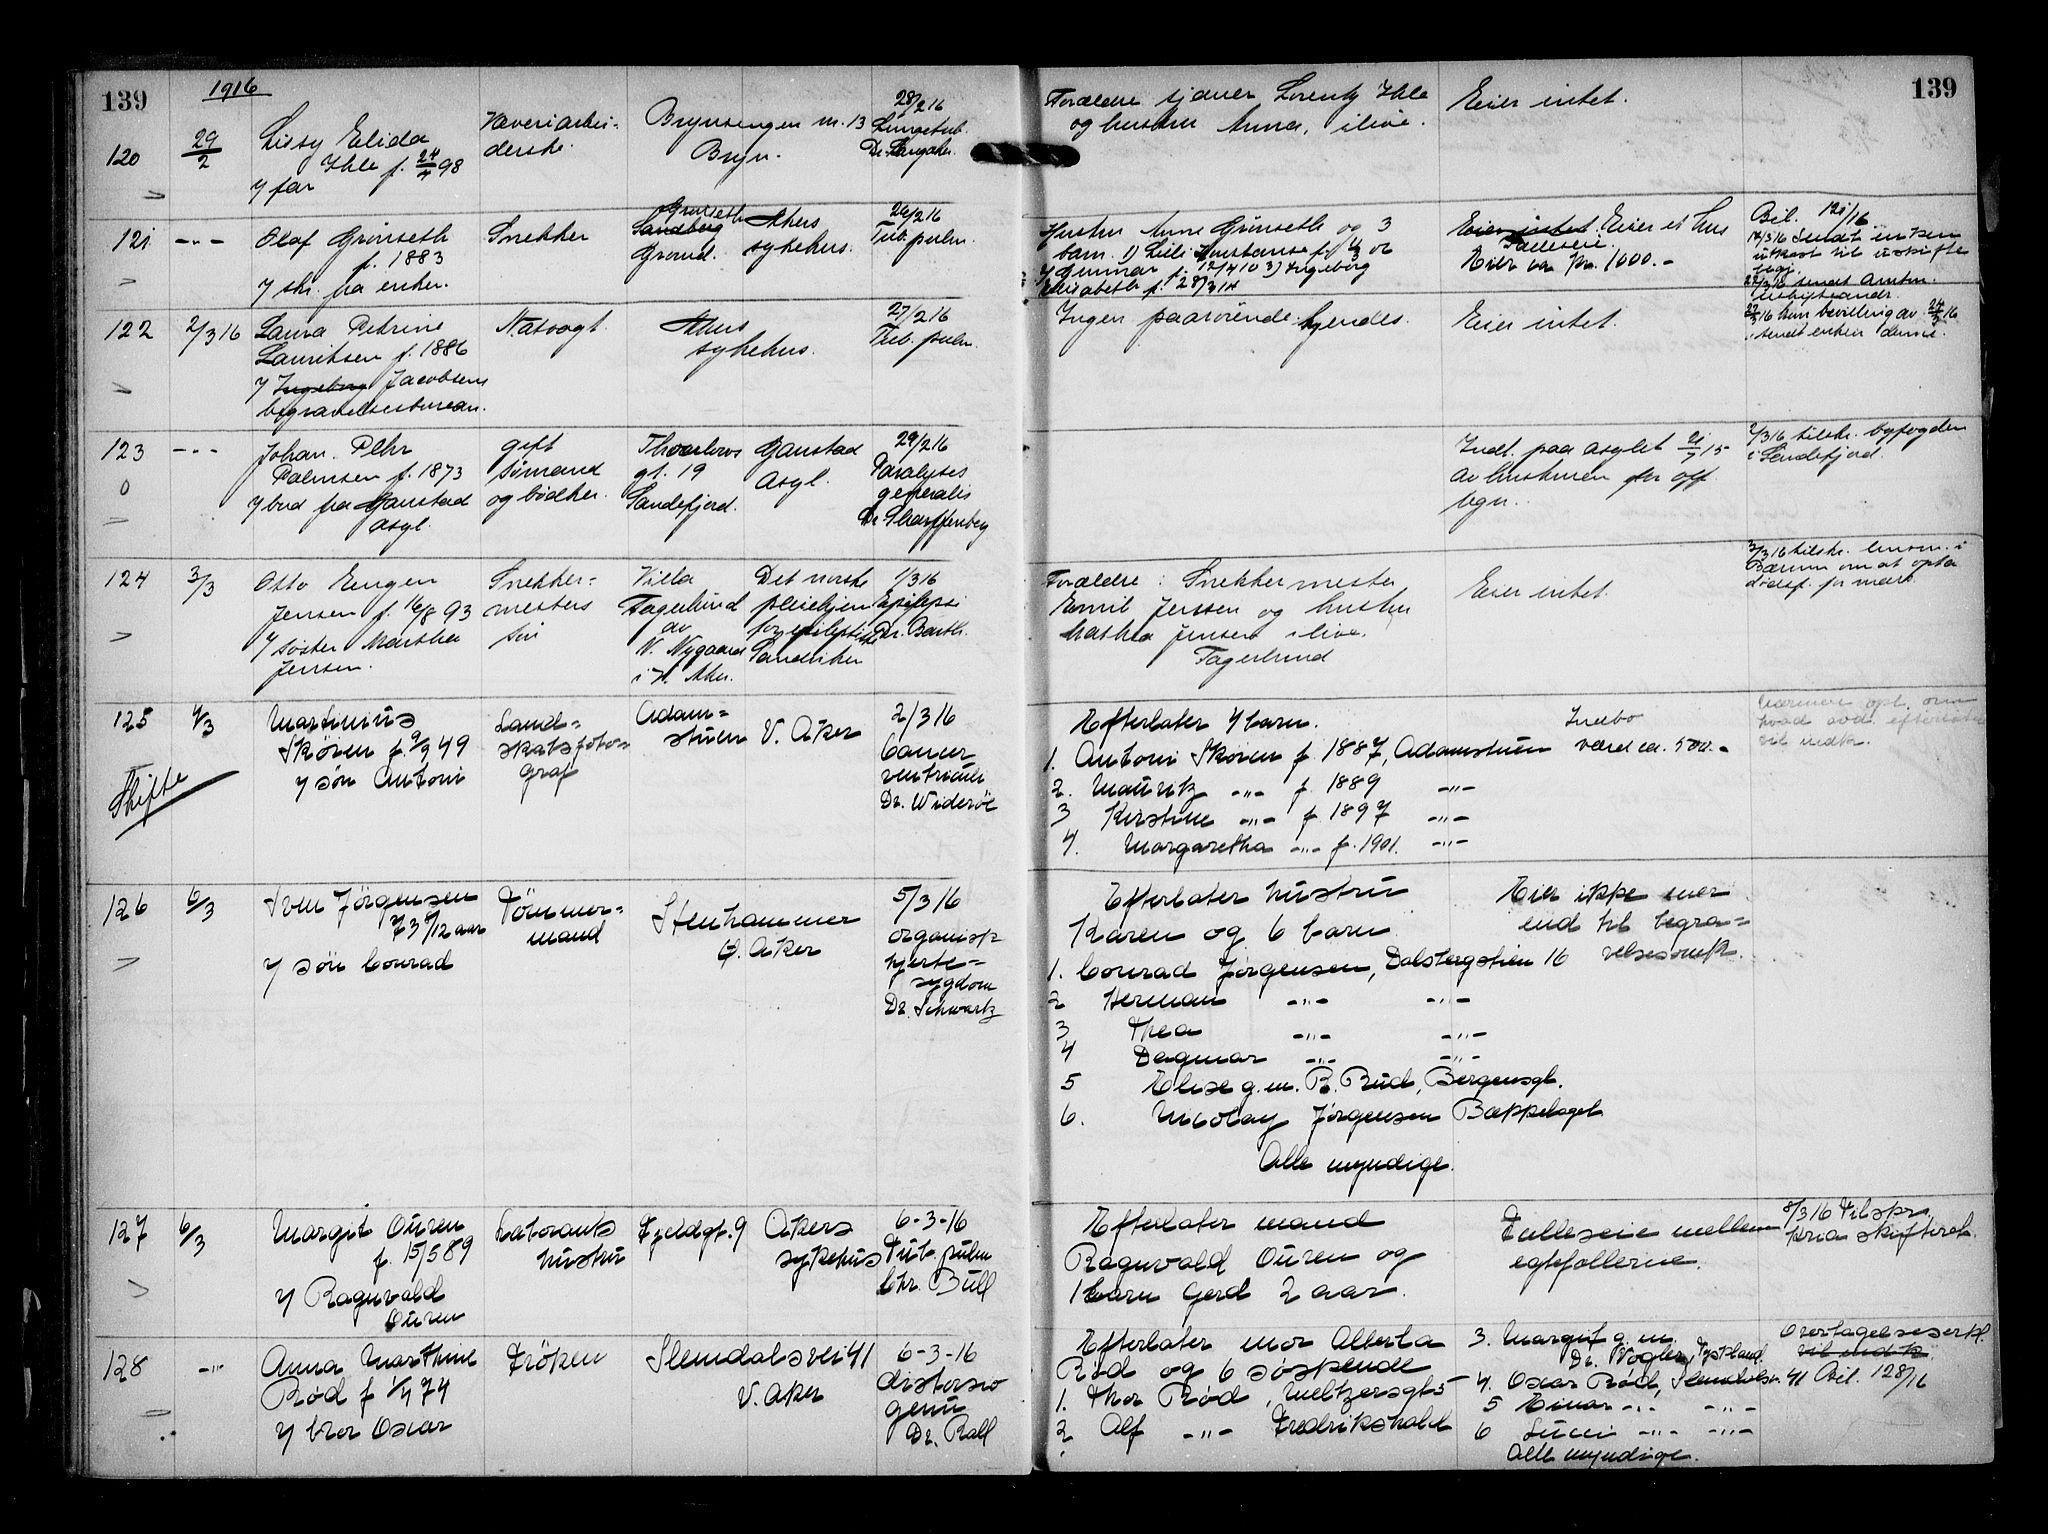 139
1916
120
29/2
Lissy Elida
Ihle f. 24/4 98
v/ far
Væveriarbei-
derske.
Brynsengen nr. 13
Bryn.
28/2 16
Lungetub.
Dr.
Forældre tjener Lorentz Ihle
og hustru Anna, ilive.
Eier intet.
139
121
-"-
Olaf Grönseth
f. 1883
v/ skr. fra enken.
Snekker
Grönseth
Sandberg
Grorud.
Akers
sykehus.
26/2 16
Tub. pulm.
Hustru Anne Grönseth og 3
barn. 1) Lilli Konstanse f. 4/3 06
2) Gunnar f. 12/4 10 3) Ingeborg
Elisabeth f. 28/3 14
Eier intet. Eier et hus
Fælleseie.
Eier ca kr. 1000.-
Bil. 121/16
14/3 16 sendt enken
utkast til uskifte
begj.
22/3 16 sendt Amtm.
uskifteandr.
27/3 16 kun bevilling av 24/3 16
sendt enken
122
2/3 16
Laura Petrine
Lauritsen f. 1886
v/ Ingeborg Jacobsens
begravelsesbureau.
Natvagt.
Akers
sykehus.
27/2 16
Tub. pulm.
Ingen paarörende kjendes.
Eier intet.
123
-"-
0
Johan Pehr
Palmsen f. 1873
v/ bud fra Gaustad
asyl.
gift
sömand
og bödker.
Thaulows
gt. 19
Sandefjord.
Gaustad
Asyl.
29/2 16
Paralyses
generalis
Dr. Scharffenberg
Indl. paa asylet 21/7 15
av hustruen for off.
regn.
2/3 16 tilskr. byfogden
i Sandefjord.
124
3/3
Otto Eugen
Jensen f. 16/8 93
v/ söster Martha
Jensen.
Snekker-
mesters
sön
Villa
Fagerlund
av
N. Nygaard
i V. Aker.
Det norske
pleiehjem
for epileptiske
Sandviken
1/3 16
Epilepsi
Dr. Barth.
Forældre: Snekkermester
Emil Jenssen og hustru
Mathea Jensen ilive.
Fagerlund
Eier intet.
3/3 16 tilskr. lensm. i
Bærum om at opta
dödsf. for mark.
125
4/3
Skifte
Martinius
Skören f. 9/9 49
v/ sön Antoni
Land-
skabsfoto-
graf
Adam-
stuen
V. Aker
2/3 16
Cancer
ventriculi
Dr. Wideröe
Efterlater 4 barn.
1. Antoni Skören f. 1887, Adamstuen
2. Mauritz -"- f. 1889 -"-
3 Kirstine -"- f. 1897 -"-
4. Margaretha -"- f. 1901. -"-
Indbo
værd ca. 500.-
Nærmere opl. om
hvad avd. efterlater
vil indk.
126
6/3
Sven Jörgensen
73 6/12 aar
v/ sön Conrad
Tömmer-
mand
Stenhammer
Ö. Aker
5/3 16
organisk
hjerte-
sygdom
Dr. Schwartz
Efterlater hustru
Karen og 6 barn.
1. Conrad Jörgensen, Dalsbergstien 16
2 Herman -"- -"-
3 Thea -"- -"-
4 Dagmar -"- -"-
5 Elise g.m. B. Rud, Bergensgt.
6. Nicolay Jörgensen Bækkelaget
Alle myndige.
Eier ikke mer
end til begra-
velsesomk.
127
6/3
Margit Ouren
f. 15/5 89
v/ Ragnvald
Ouren
Laborants
hustru
Fjeldgt. 9
Akers
sykehus
6-3-16
Tub. pulm
Chr. Bull
Efterlater mand
Ragnvald Ouren og
1 barn Gerd 2 aar.
Fælleseie mellem
egtefellerne.
8/3 16 Tilskr.
Kria skifteret.
128
-"-
Anna Marthine
Röd f 1/7 74
v/ bror Oscar
Fröken
Slemdalsvei 41
V. Aker
6-3-16
distorsio
genu
Dr. Rall
Efterlater mor Alberta
Röd og 6 söskende
1. Thor Röd, Meltzersgt 5
2 Alf -"- Fredrikshald
3. Margit g.m.
Dr. Vogler, Tyskland
4. Oscar Röd, Slemdalsv. 41
5 Einar -"- -"-
6 Lucie -"- -"-
Alle myndige.
Overtagelseserkl.
vil indk.
Bil. 128/16